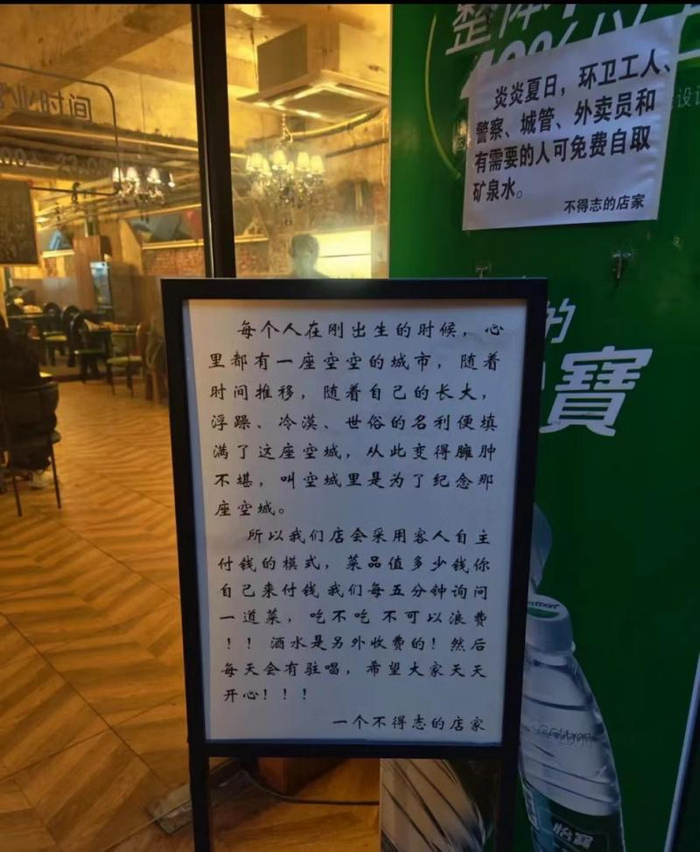 整体
炎炎夏日，环卫工人、
警察、城管、外卖员和
有需要的人可免费自取
矿泉水。
不得志的店家
设计
业时间
的
寶
每个人在刚出生的时候，心
里都有一座空空的城市，随着
时间推移，随着自己的长大，
浮躁、冷漠、世俗的名利便填
满了这座空城，从此变得臃肿
不堪，叫空城里是为了纪念那
座空城。
所以我们店会采用客人自主
付钱的模式，菜品值多少钱你
自己来付钱我们每五分钟询问
一道菜，吃不吃 不可以浪费
！！酒水是另外收费的！然后
每天会有驻唱，希望大家天天
开心！！！
一个不得志的店家
怡寶